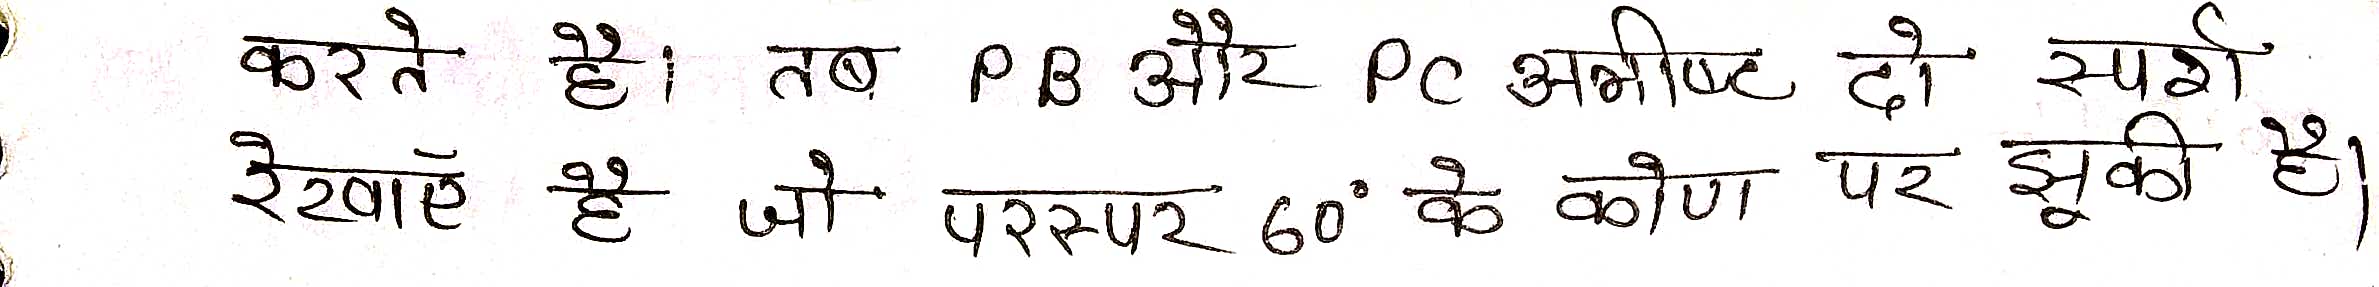 करते है। तब PB और PC अभीष्ट दो स्पर्श
रेखाएँ है जो परस्पर 60° के कोण पर झूकी है।